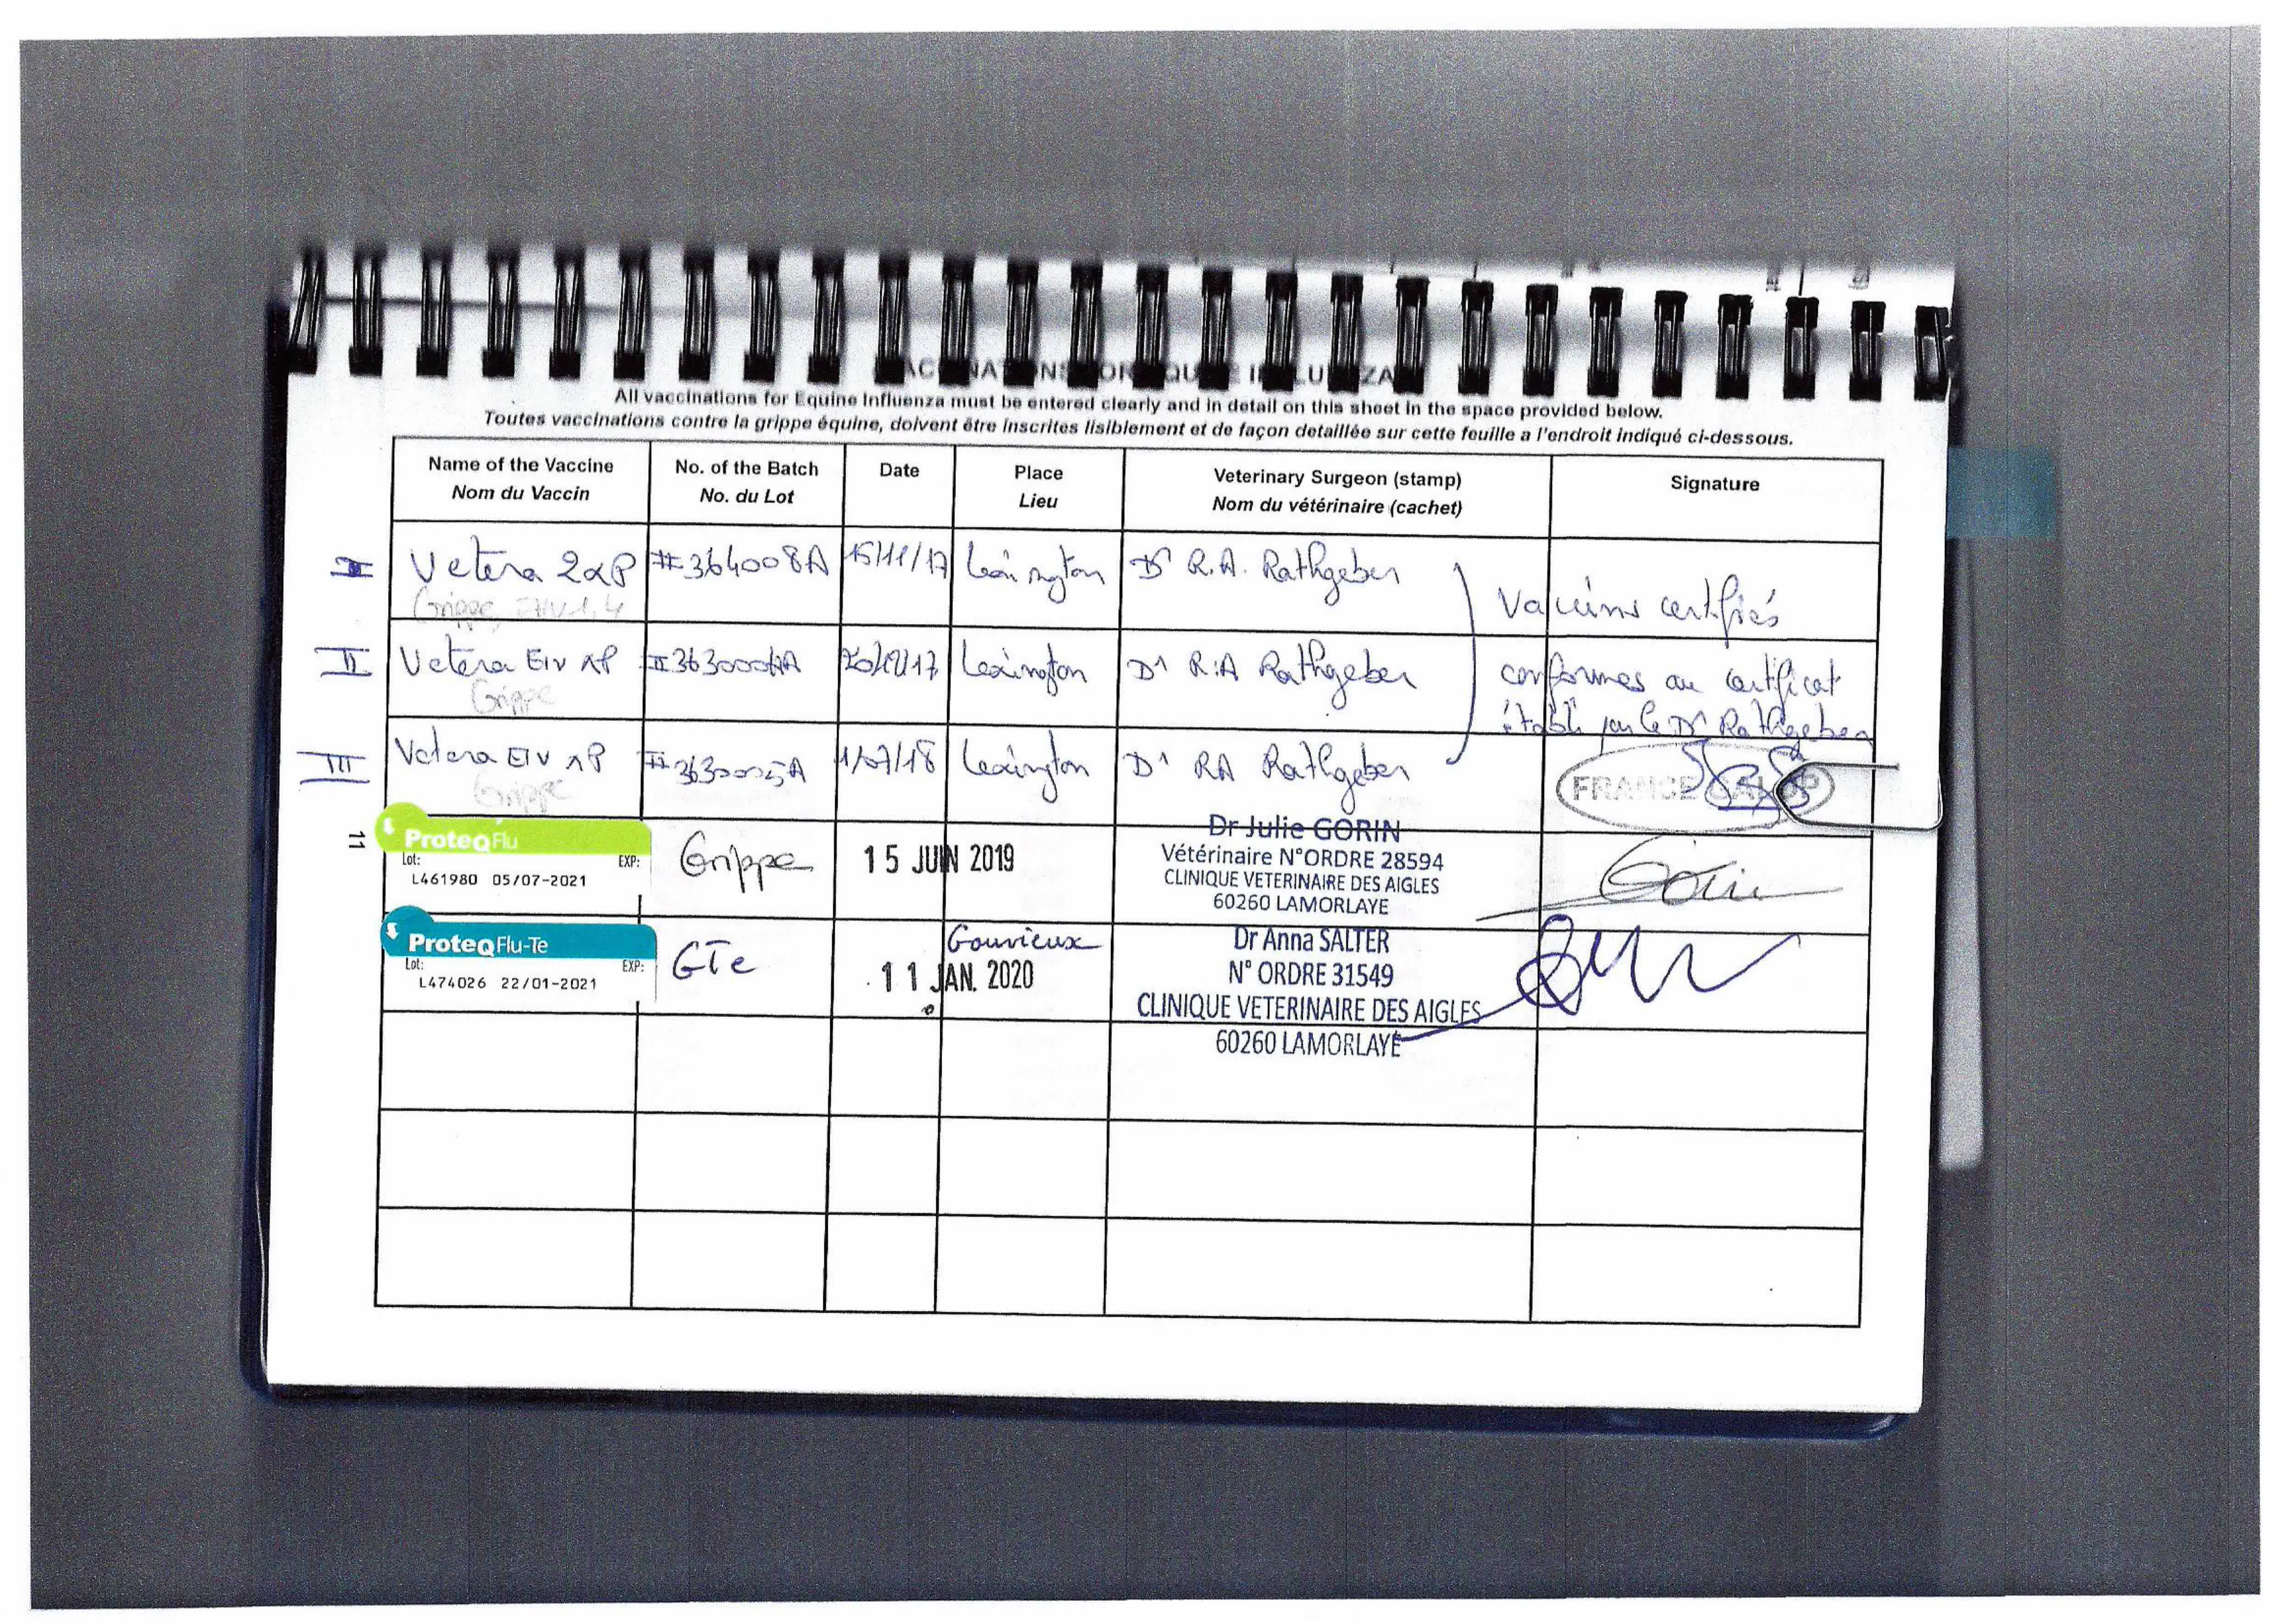 VACCINATIONS FOR EQUINE INFLUENZA
All vaccinations for Equine Influenza must be entered clearly and in detail on this sheet in the space provided below.
Toutes vaccinations contre la grippe équine, doivent être inscrites lisiblement et de façon detaillée sur cette feuille a l'endroit indiqué ci-dessous.
Name of the Vaccine No. of the Batch Date Place Veterinary Surgeon (stamp) Signature
Nom du Vaccin No. du Lot Lieu Nom du vétérinaire (cachet)
I Vetera 2xP #364008A 15/11/17 Lexington Dr R.A. Rathgeber
Grippe, EHV1,4
Vaccins certifiés
II Vetera EIV XP Lexington Dr R.A Rathgeber conformes au certificat
Grippe
établi par le Dr Rathgeber
III Vetera EIV XP #3630005A 1/07/18 Lexington Dr RA Rathgeber
Grippe
FRANCE GALOP
11
ProteqFlu
Lot: EXP:
L461980 05/07-2021
Grippe 15 JUIN 2019
Dr Julie GORIN
Vétérinaire N°ORDRE 28594
CLINIQUE VETERINAIRE DES AIGLES
60260 LAMORLAYE
Gorin
ProteqFlu-Te
Lot: EXP:
L474026 22/01-2021
GTe Gouvieux
11 JAN. 2020
Dr Anna SALTER
N° ORDRE 31549
CLINIQUE VETERINAIRE DES AIGLES
60260 LAMORLAYE